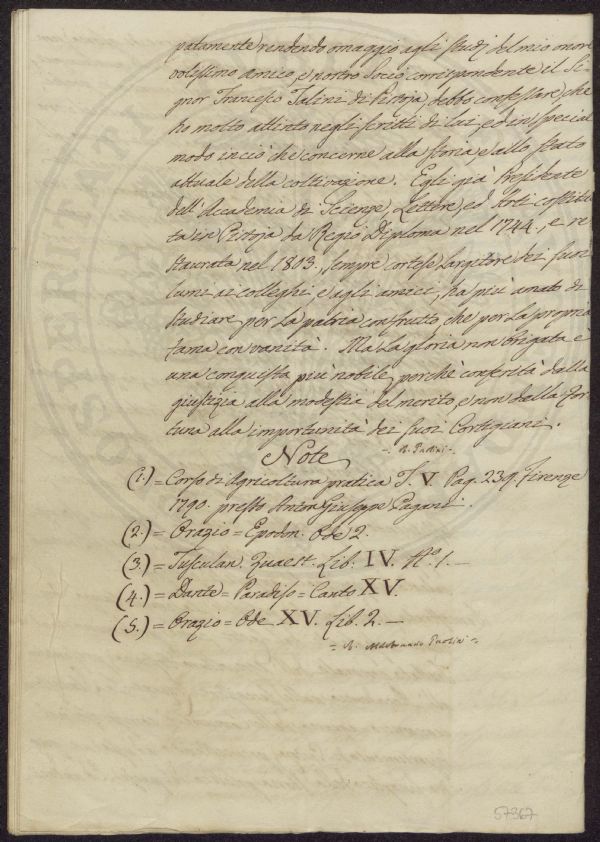 patamente rendendo omaggio agli studj del mio onore
volissimo amico, e nostro Socio corrispondente il Si=
gnor Francesco Talini di Pistoja, debbo confessare, che
ho molto attinto negli scritti di Lui, ed in special
modo in ciò che concerne alla storia, e allo stato
attuale della coltivazione. Egli già Presidente
dell'Accademia di Scienze, Lettere, ed Arti costitui
ta in Pistoja da Regio Diploma nel 1744, e re
staurata nel 1803, sempre cortese Largitore dei suoi
lumi ai colleghi e agli amici, ha più amato di
studiare per La patria con frutto, che per La propria
fama con vanità. Ma La gloria non brigata è
una conquista più nobile, perchè conferita dalla
giustizia alla modestia del merito, e non dalla For=
tuna alla importunità dei suoi Cortigiani.
Note
(1.) = Corso di Agricoltura pratica T. V. Pag. 239. Firenze
1790. presso Anton Giuseppe Pagani.
(2.) = Orazio = Epodon. Ode 2.
(3.) = Tusculan. Quaest. Lib. IV. N.º 1. —
(4.) = Dante = Paradiso = Canto XV.
(5.) = Orazio = Ode XV. Lib. 2. —
57367